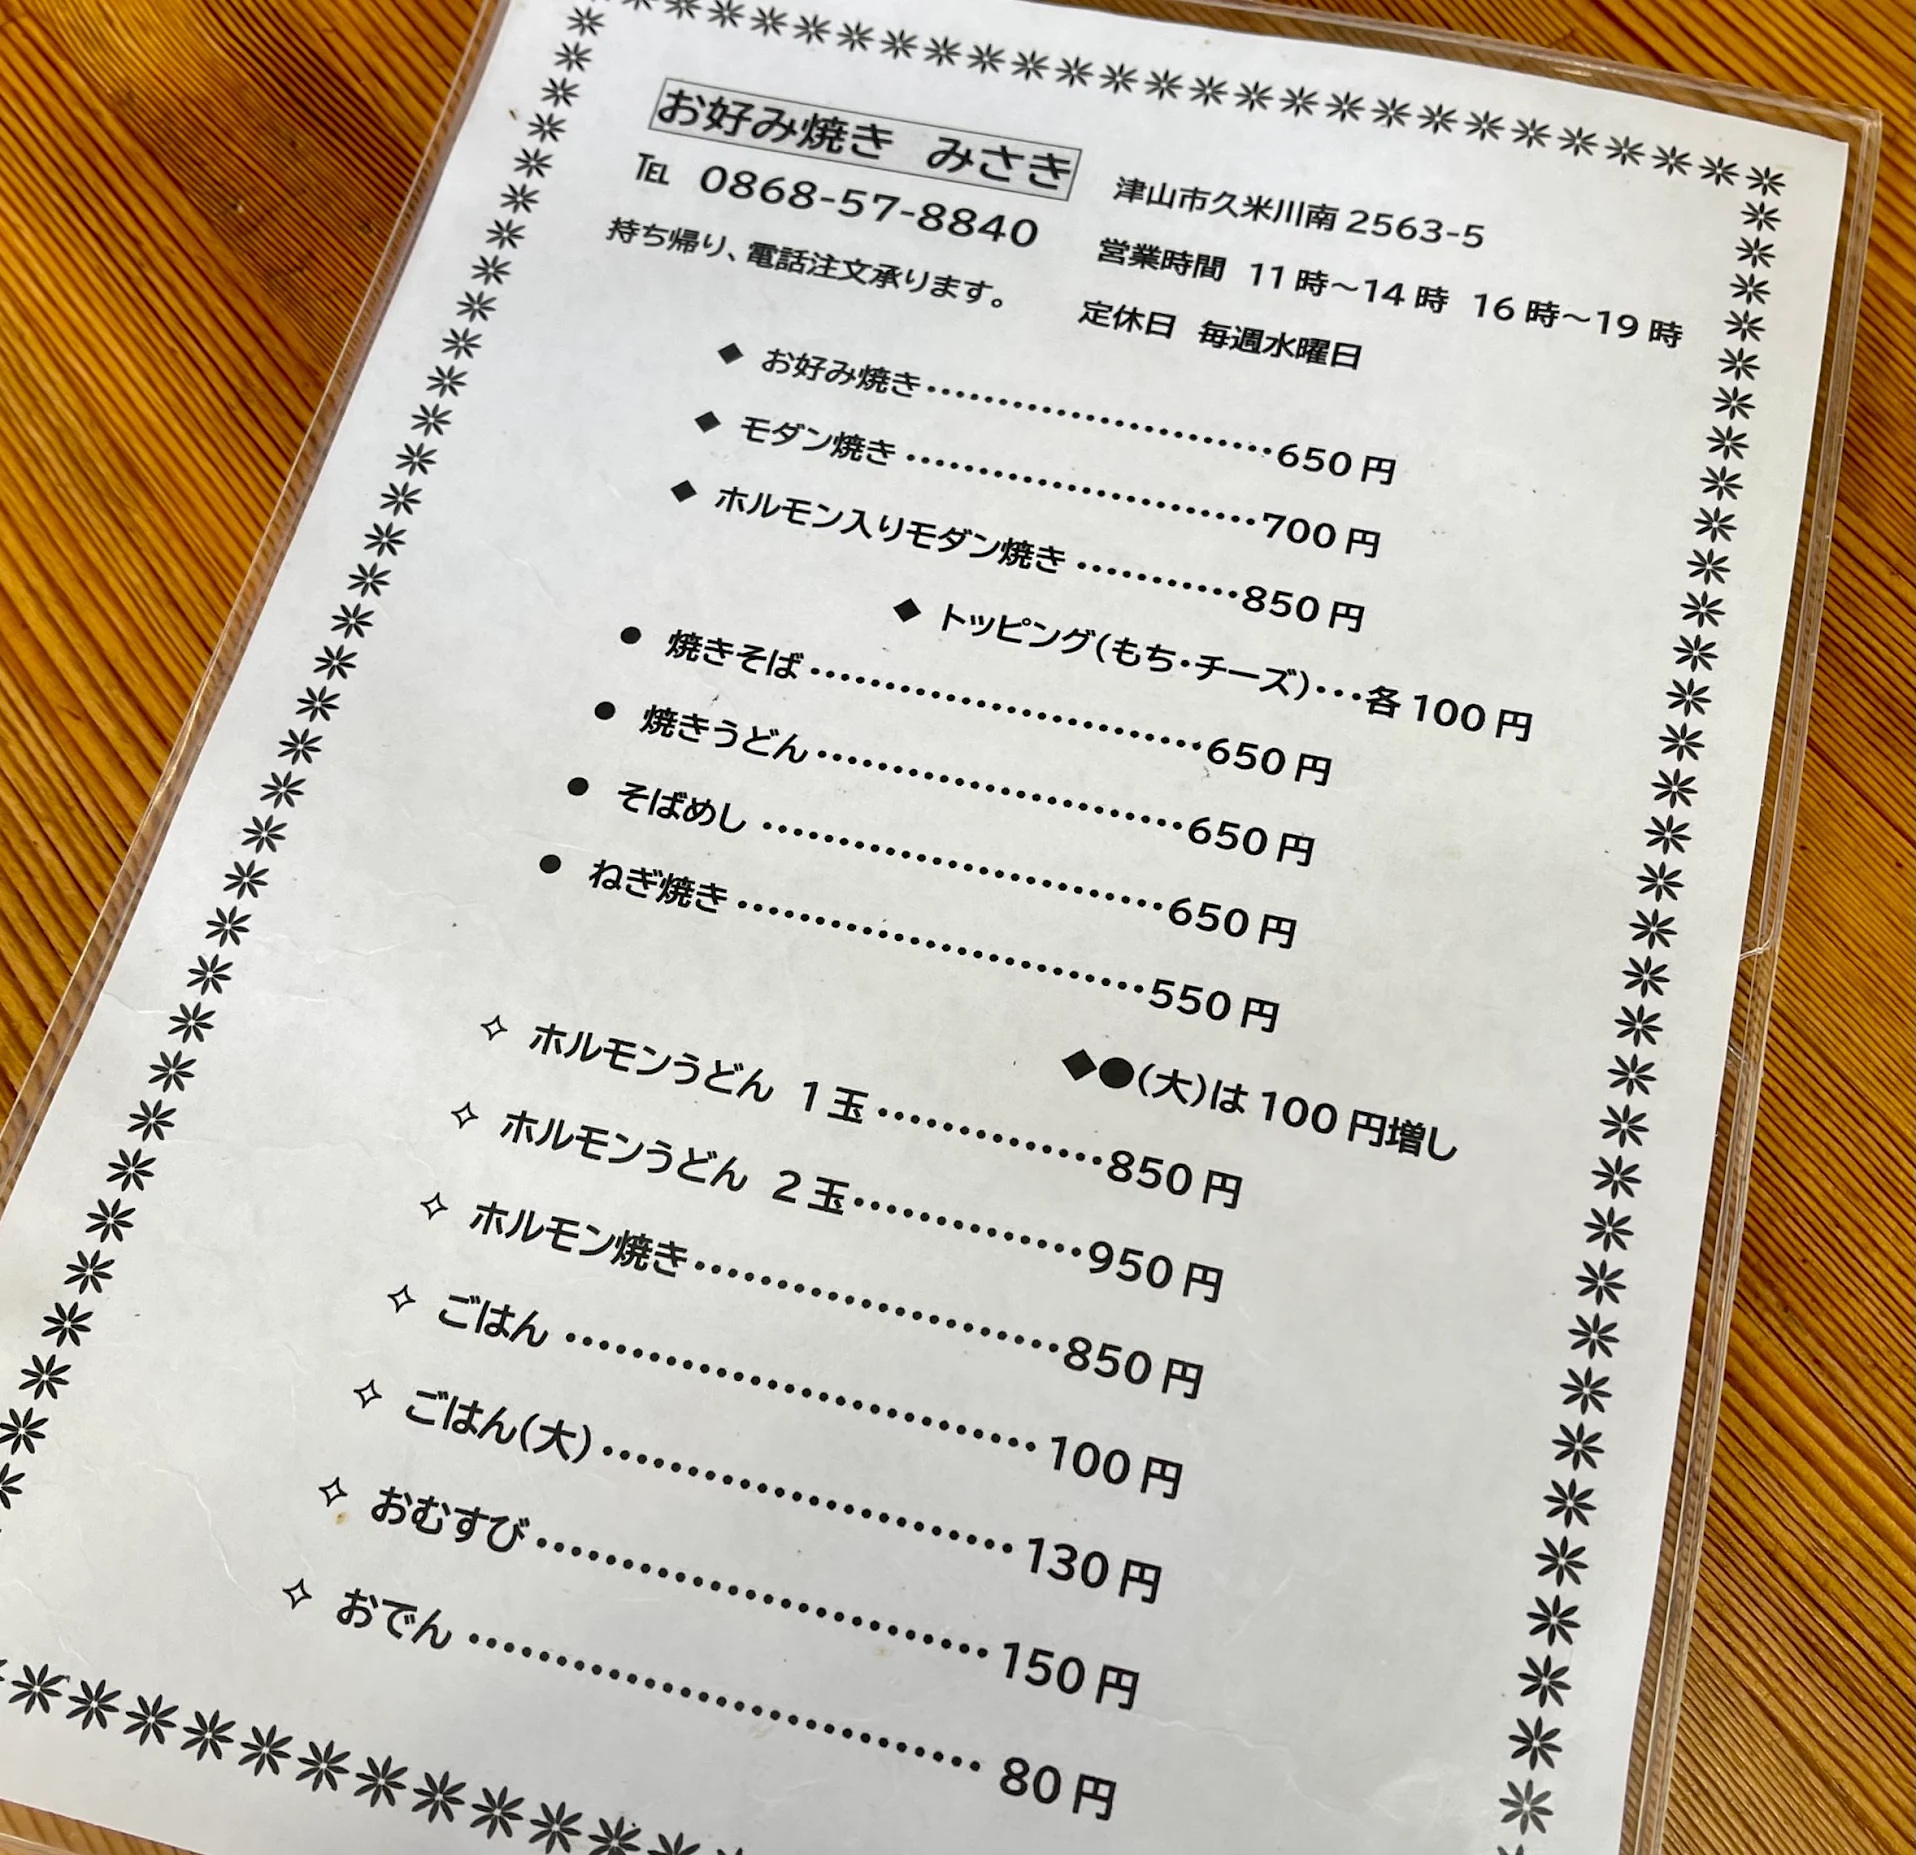 お好み焼き みさき
℡ 0868-57-8840
持ち帰り、電話注文承ります。
津山市久米川南2563-5
営業時間 11時～14時 16時～19時
定休日 毎週水曜日
◆ お好み焼き…………………………650円
◆ モダン焼き…………………………700円
◆ ホルモン入りモダン焼き…………850円
◆ トッピング(もち・チーズ)…各100円
● 焼きそば……………………………650円
● 焼きうどん…………………………650円
● そばめし……………………………650円
● ねぎ焼き……………………………550円
◆●(大)は100円増し
✧ ホルモンうどん 1玉………………850円
✧ ホルモンうどん 2玉………………950円
✧ ホルモン焼き………………………850円
✧ ごはん………………………………100円
✧ ごはん(大)…………………………130円
✧ おむすび……………………………150円
✧ おでん………………………………80円